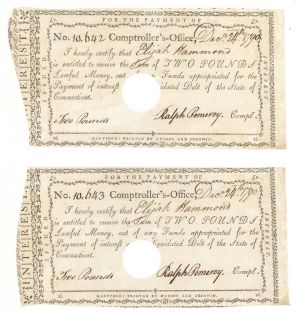 FOR THE PAYMENT OF
INTEREST
No. 10.642 Comptroller's-Office, Decr. 24th 1790
I hereby certify that Elijah Hammond
is entitled to receive the Sum of TWO POUNDS
Lawful Money, out of any Funds appropriated for the
Payment of interest on Liquidated Debt of the State of
Connecticut.
Two Pounds Ralph Pomeroy, Compt.
HARTFORD: PRINTED BY HUDSON AND GOODWIN.
FOR THE PAYMENT OF
INTEREST
No. 10.643 Comptroller's-Office, Decr. 24th 1790
I hereby certify that Elijah Hammond
is entitled to receive the Sum of TWO POUNDS
Lawful Money, out of any Funds appropriated for the
Payment of interest Liquidated Debt of the State of
Connecticut.
Two Pounds Ralph Pomeroy, Compt.
HARTFORD: PRINTED BY HUDSON AND GOODWIN.